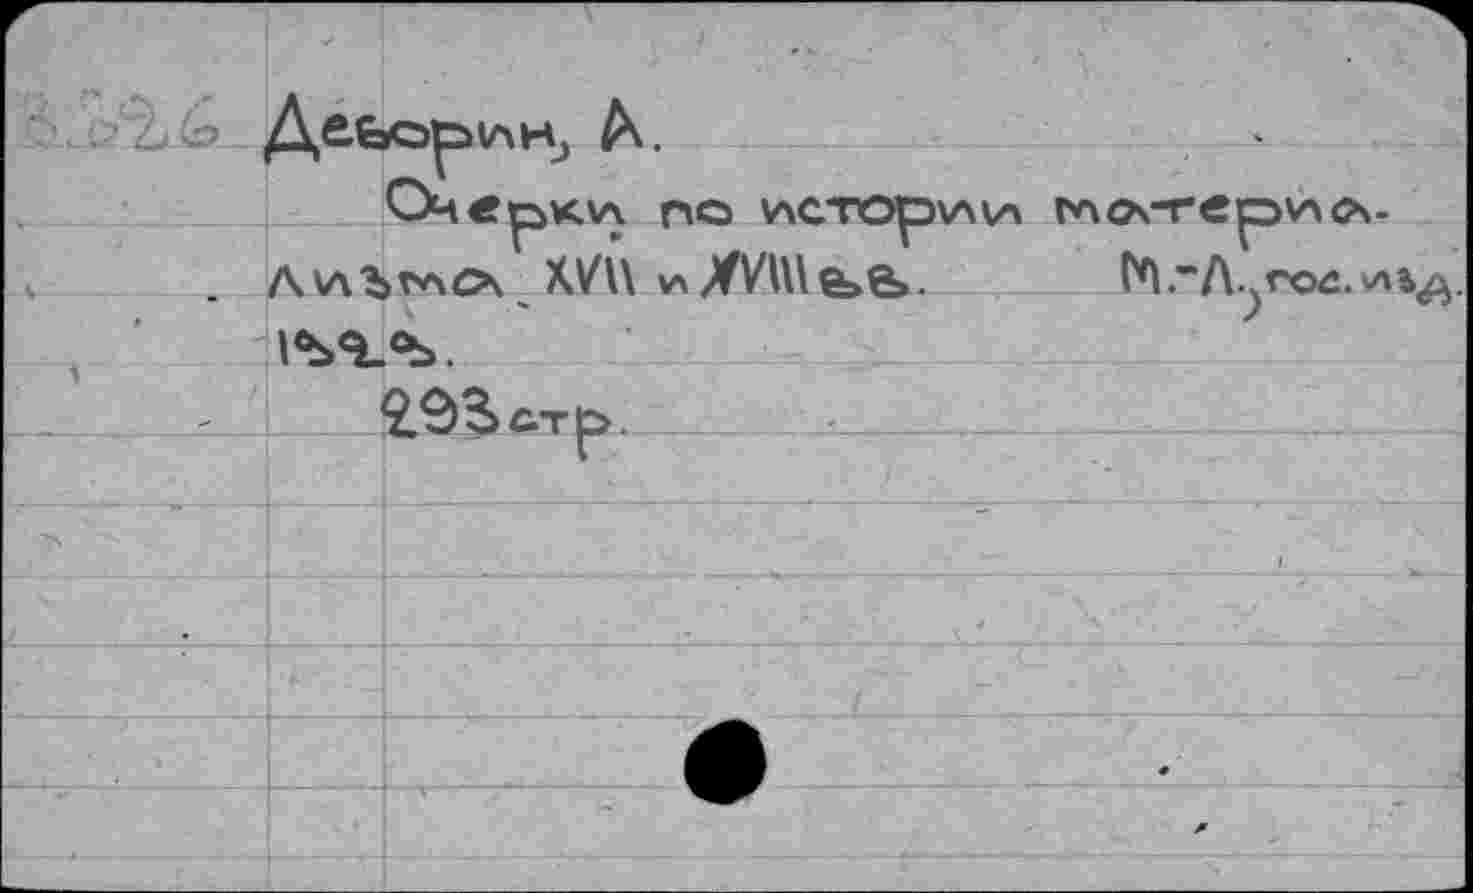 Деборин, А.
Очерки по истории материа-
лизма XVII и XVIII вв. М.-Л., гос. изд.
1929.
293 стр.